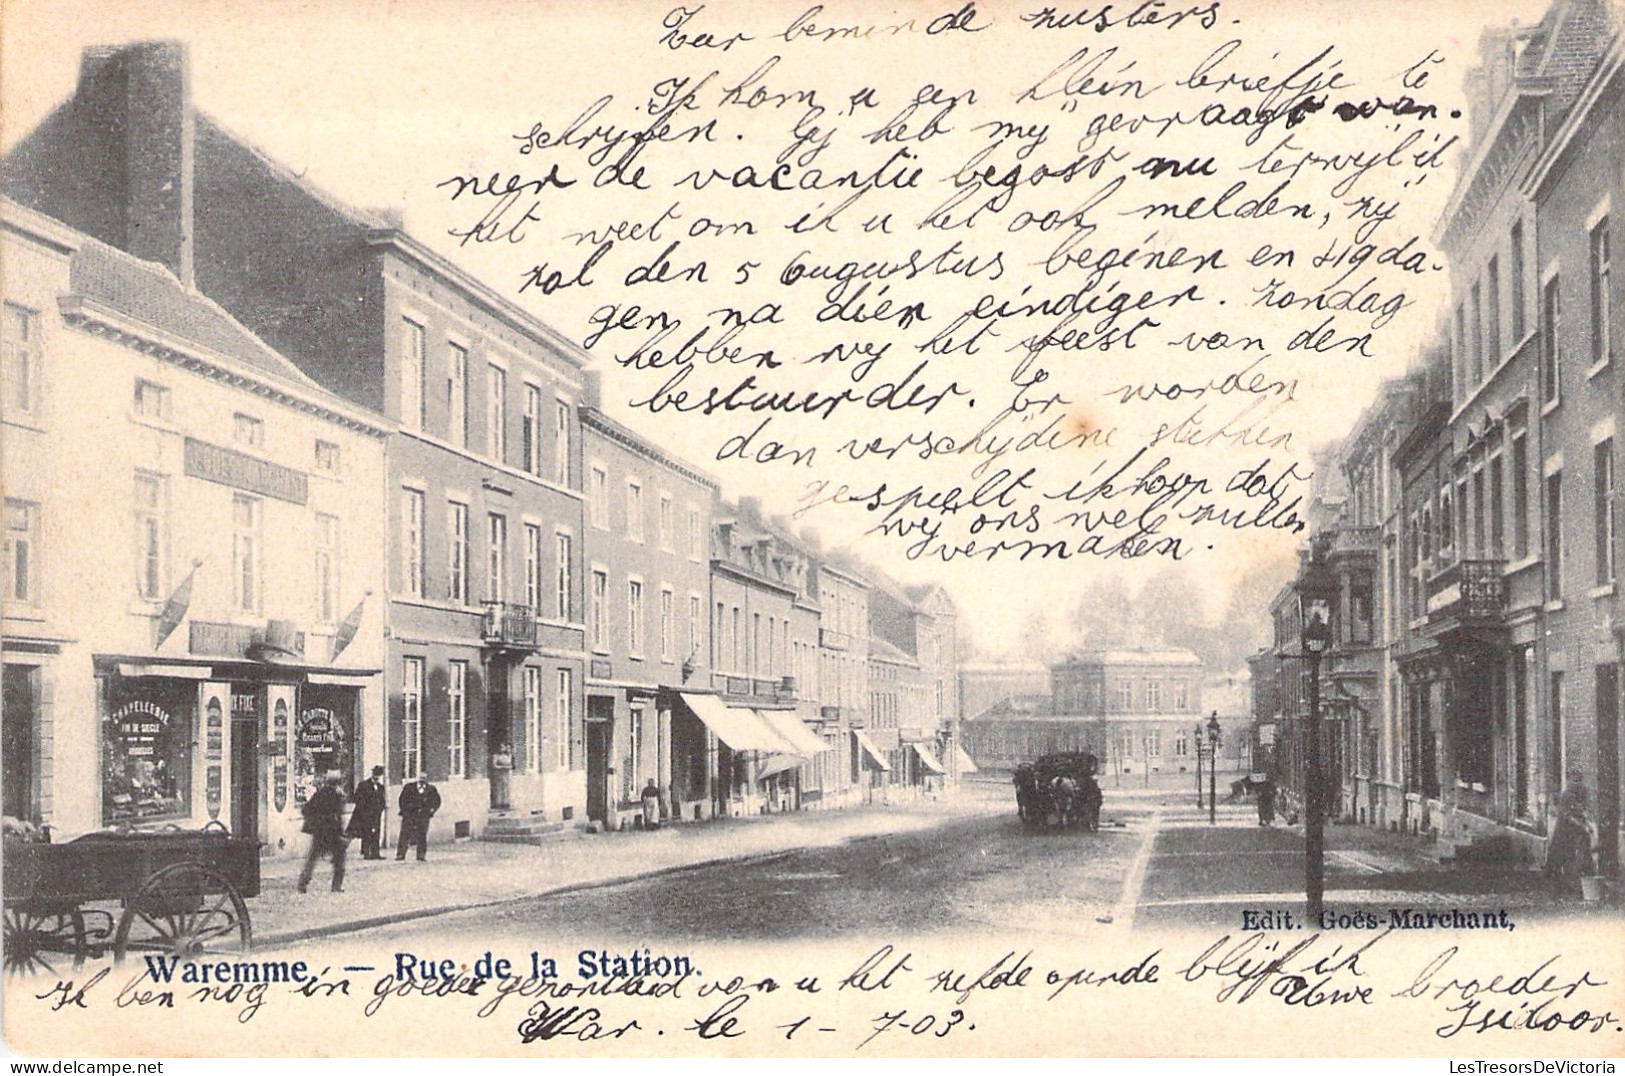 Zeer beminde zusters.
Ik kom u een klein briefje te
schrijfen. Gij heb mij gevraagt wan.
neer de vacantie begost nu terwijl ik
het weet om ik u het ook melden, zij
zal den 5 Gugustus beginen en dagen
gen na dien eindigen. Zondag
hebben wij het feest van den
bestuurder. Er worden
dan verschijdene stukken
gespeelt ik hoop dat
wij ons wel zullen
vermaken.
CHAPELLERIE
FIN DE SIECLE
Edit. Goës-Marchant,
Waremme. — Rue de la Station.
Ik ben nog in goede gezontheid van u het zelfde opende blijf ik
Uwe broeder
War. le 1-7-03.
Isidoor.
LesTresorsDeVictoria